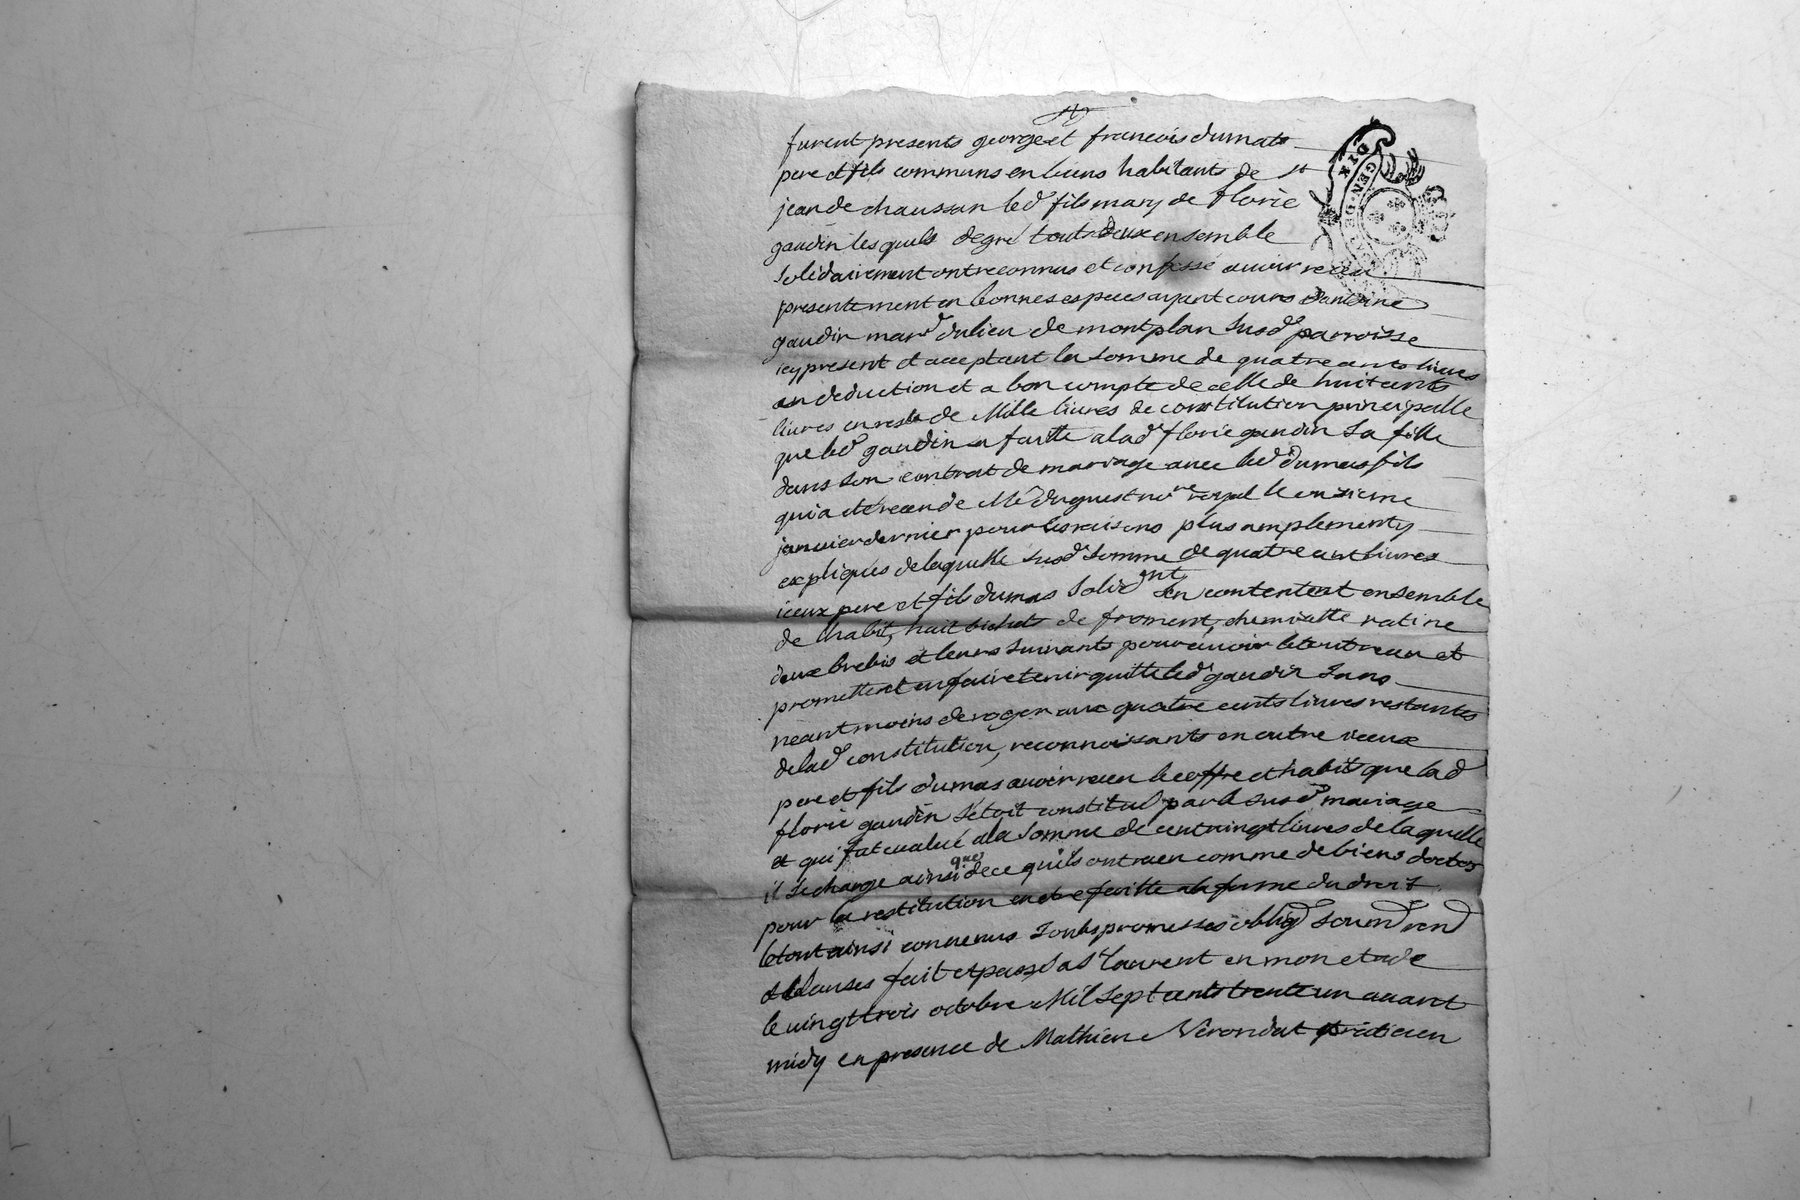 furent presents george et francois dumats
pere et fils communs en biens habitants de st
jean de chaussan led fils mary de florie
gaudin lesquels degré touts deux ensemble
solidairement ont reconnus et confessé avoir receu
presentement en bonnes especes ayant cours danthoine
gaudin mard du lieu de montplan susde parroisse
icy present et acceptant la somme de quatre cents livres
en deduction et a bon compte de celle de huit cents
livres en reste de Mille livres de constitution principalle
que led gaudin a faitte a lad florie gaudin sa fille
dans son contrat de mariage avec led dumas fils
qui a ete receu de Me duguest nore royal le onzieme
janvier dernier pour les raisons plus amplement y
expliqués de laquelle susd somme de quatre cent livres
iceux pere et fils dumas solidnt sen contentent ensemble
de lhabit, huit bichets de froment, chemisette ratine
deux brebis et leurs suivants pour avoir le tout receu et
promettent en faire tenir quitte led gaudin sans
neantmoins deroger aux quatre cents livres restantes
de lad constitution, reconnoissants en outre iceux
pere et fils dumas avoir receu le coffre et habits que lad
florie gaudin setoit constitué par le susd mariage
et qui fut evalué a la somme de cent vingt livres de laquelle
il se charge ainsi que de ce quils ont receu comme de biens doctos
pour la restitution en etre faitte a la forme du droit
le tout ainsi convenus sous les promesses obligd soumd rend
et clauses fait et passé a st laurent en mon etude
le vingt trois octobre Mil sept cents trente un avant
midy en presence de Mathieu Verondat praticien
GEN. DE